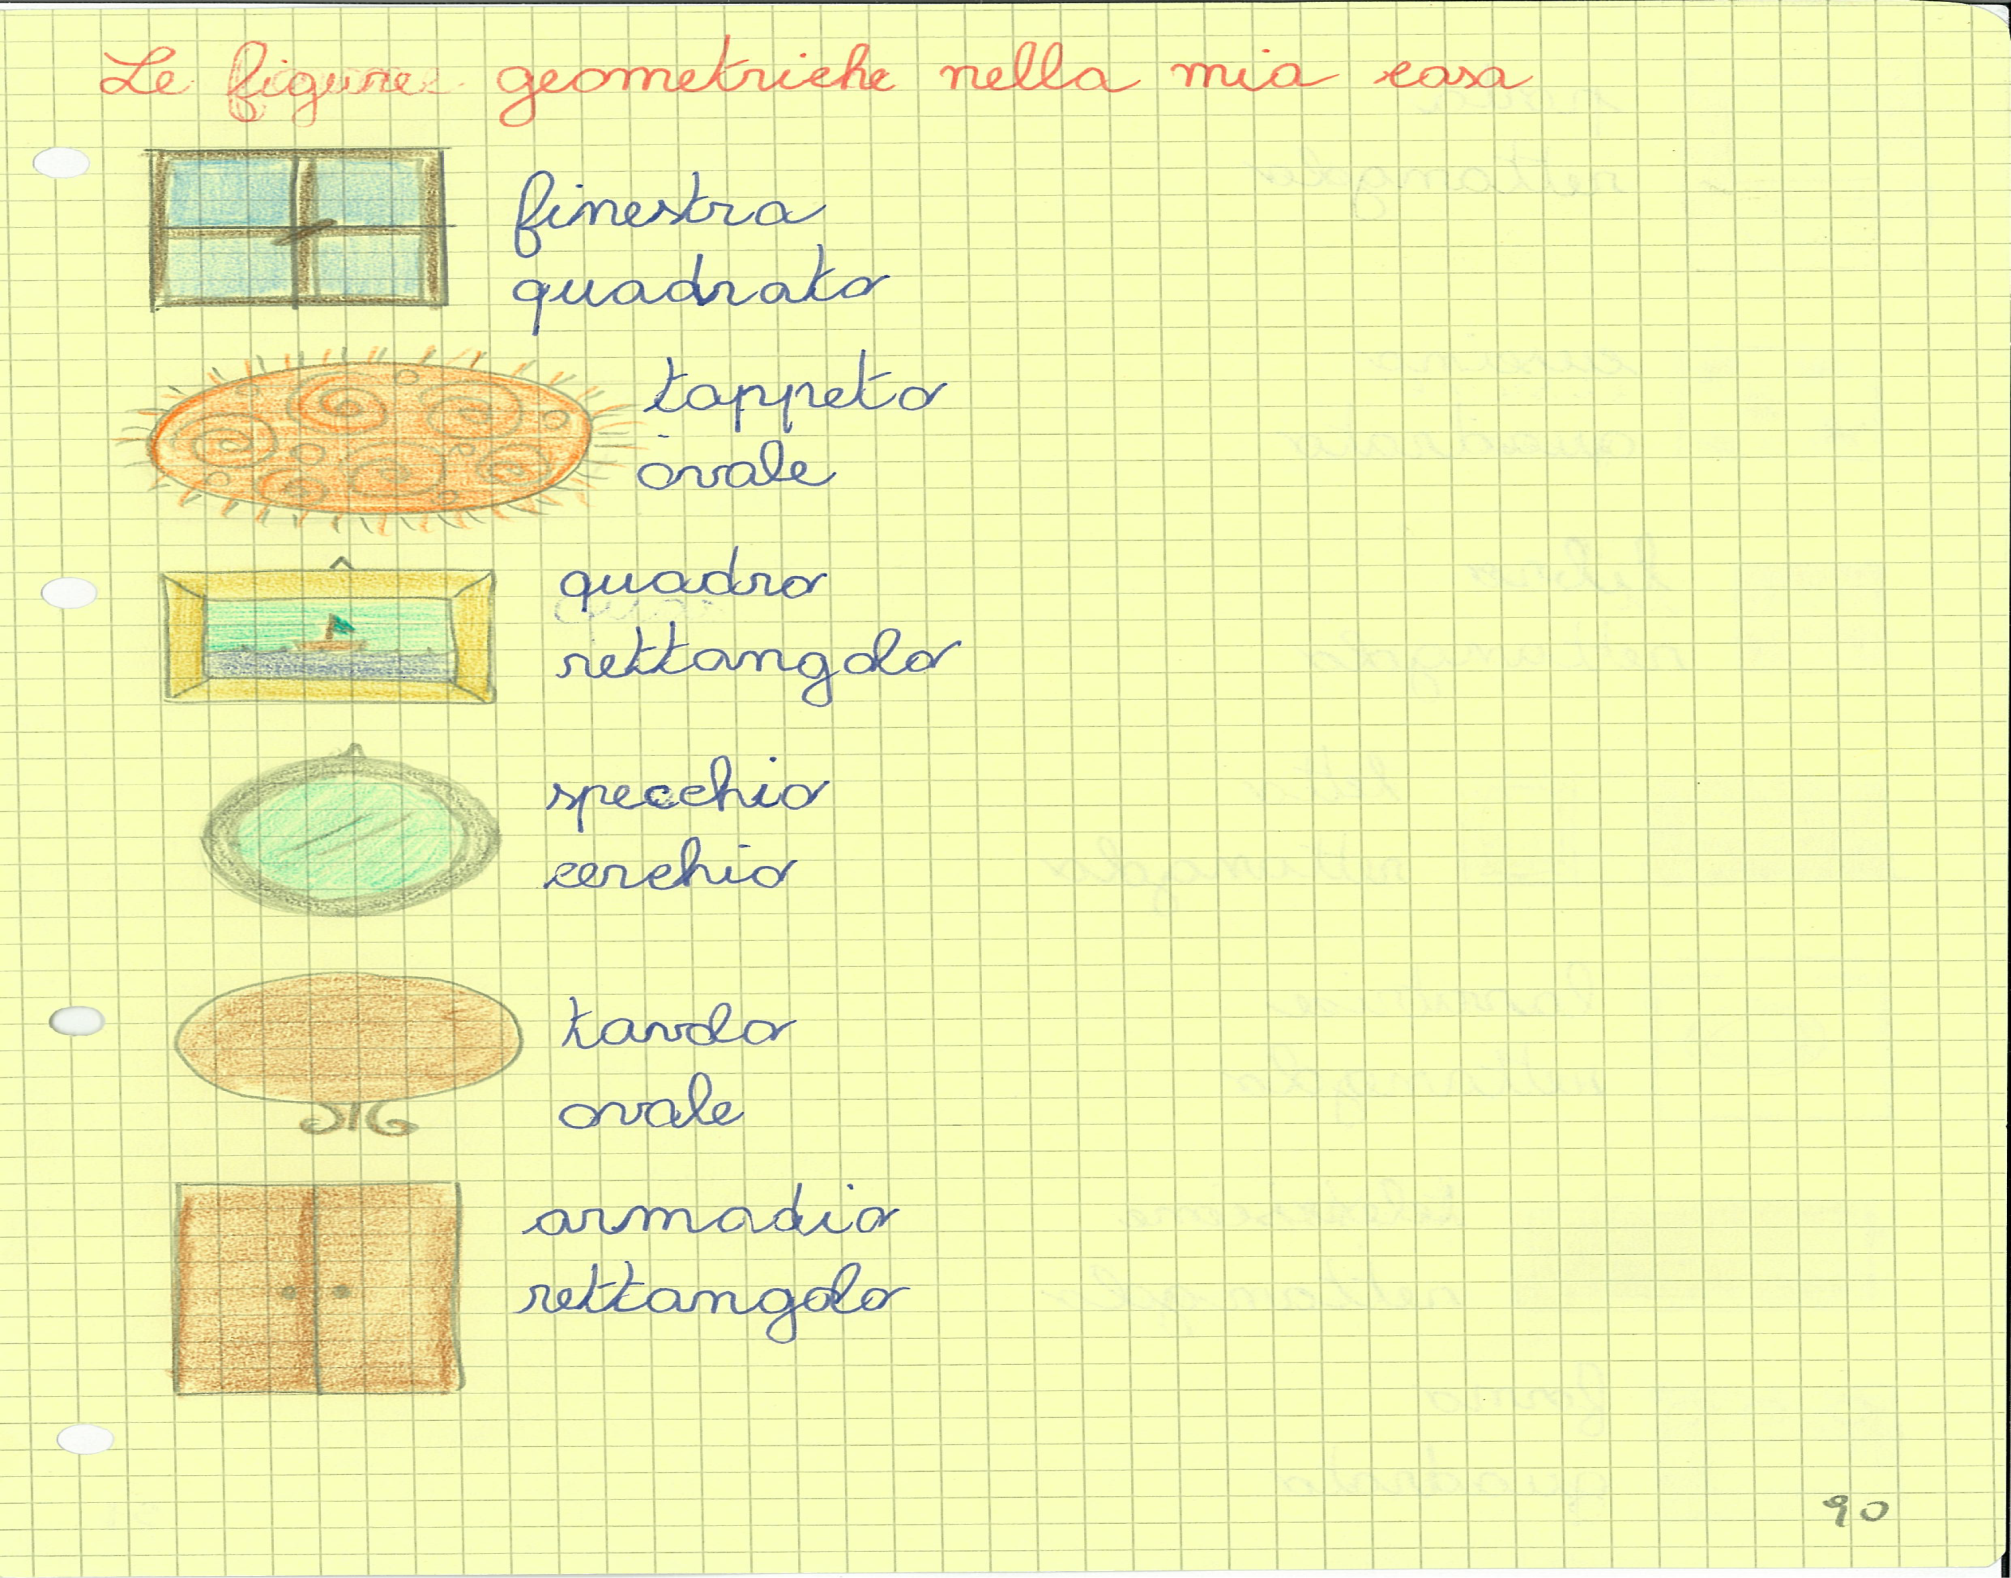 Le figure geometriche nella mia casa
finestra
quadrato
tappeto
ovale
quadro
rettangolo
specchio
cerchio
tavolo
ovale
armadio
rettangolo
90